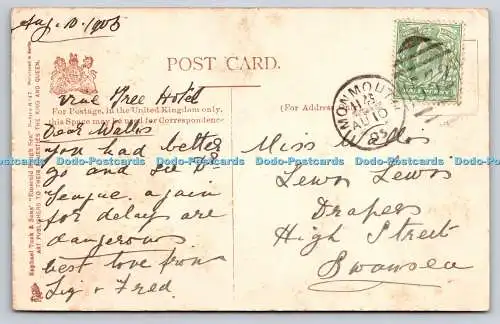 Aug. 10. 1905
POST CARD.
Vine Tree Hotel
For Postage, in the United Kingdom only,
this Space may be used for Correspondence
(For Address
Dear Wallis
You had better
go and see Dr
Teague again
for delays are
dangerous
best love from
Fred
MONMOUTH
AU 10
05
Miss Wallis
Lewis Lewis
Drapers
High Street
Swansea
Raphael Tuck & Sons'
ART PUBLISHERS TO THEIR MAJESTIES THE KING AND QUEEN.
Dodo-Postcards Dodo-Postcards Dodo-Postcards Dodo-Postcards Dodo-Postcards